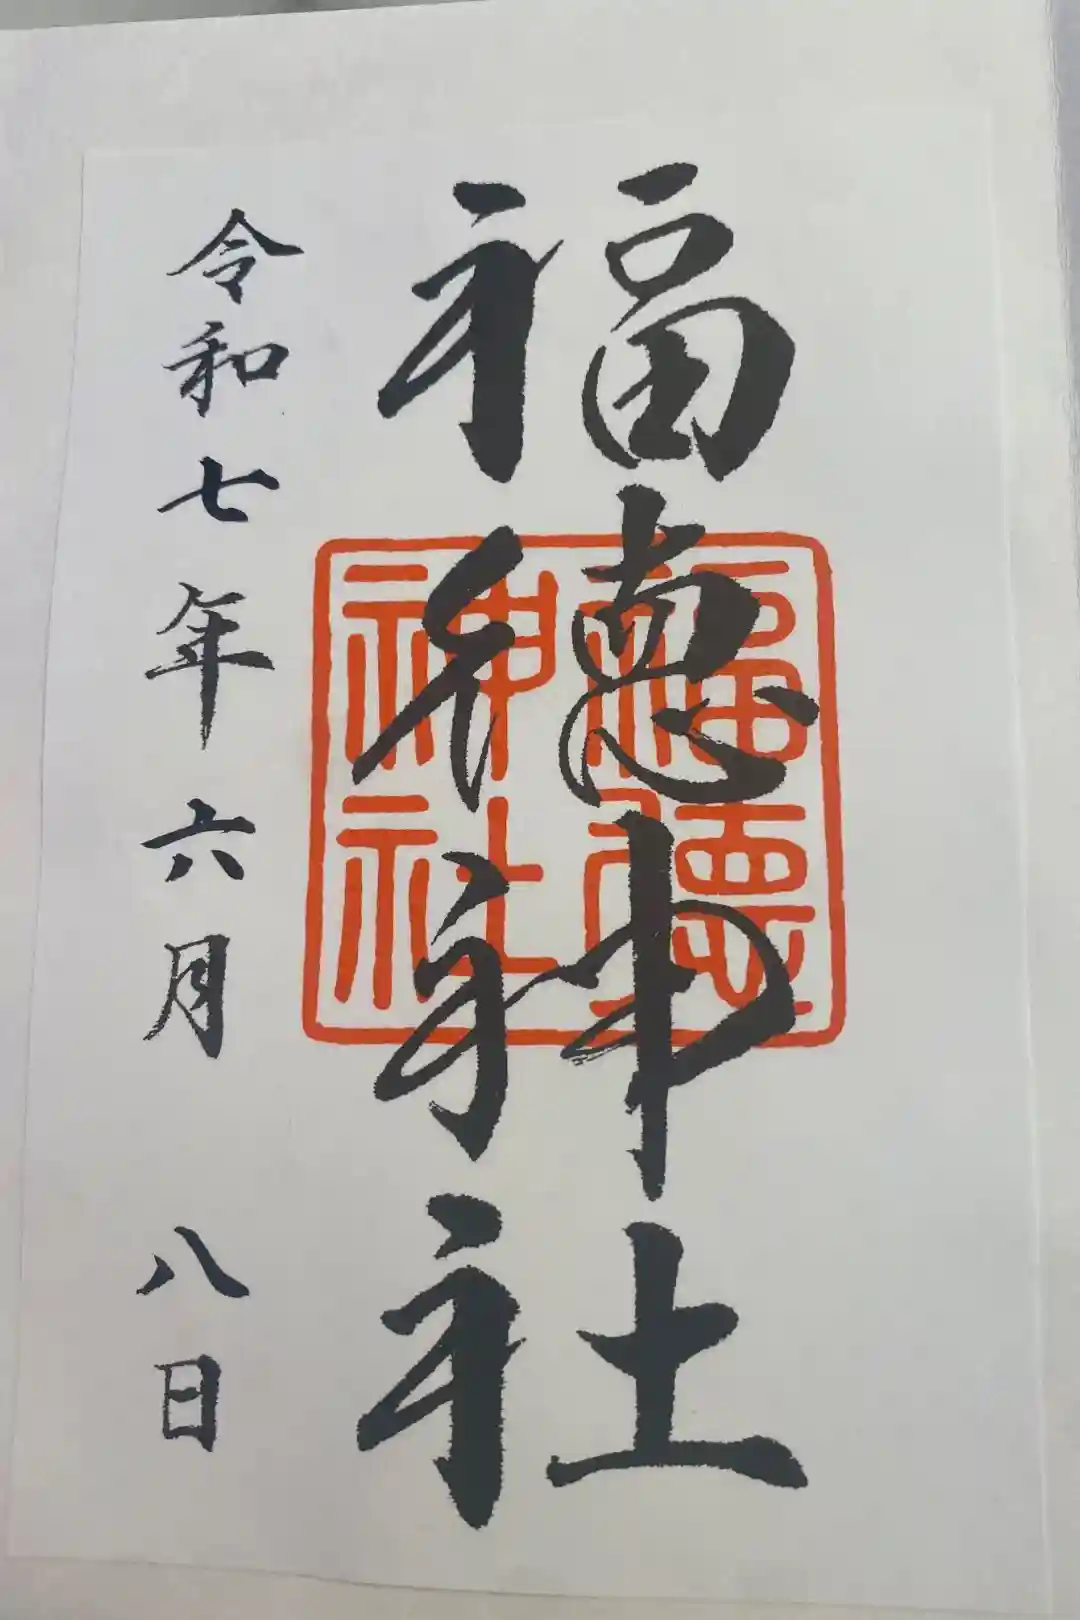 福徳神社
福徳
神社
令和七年六月八日